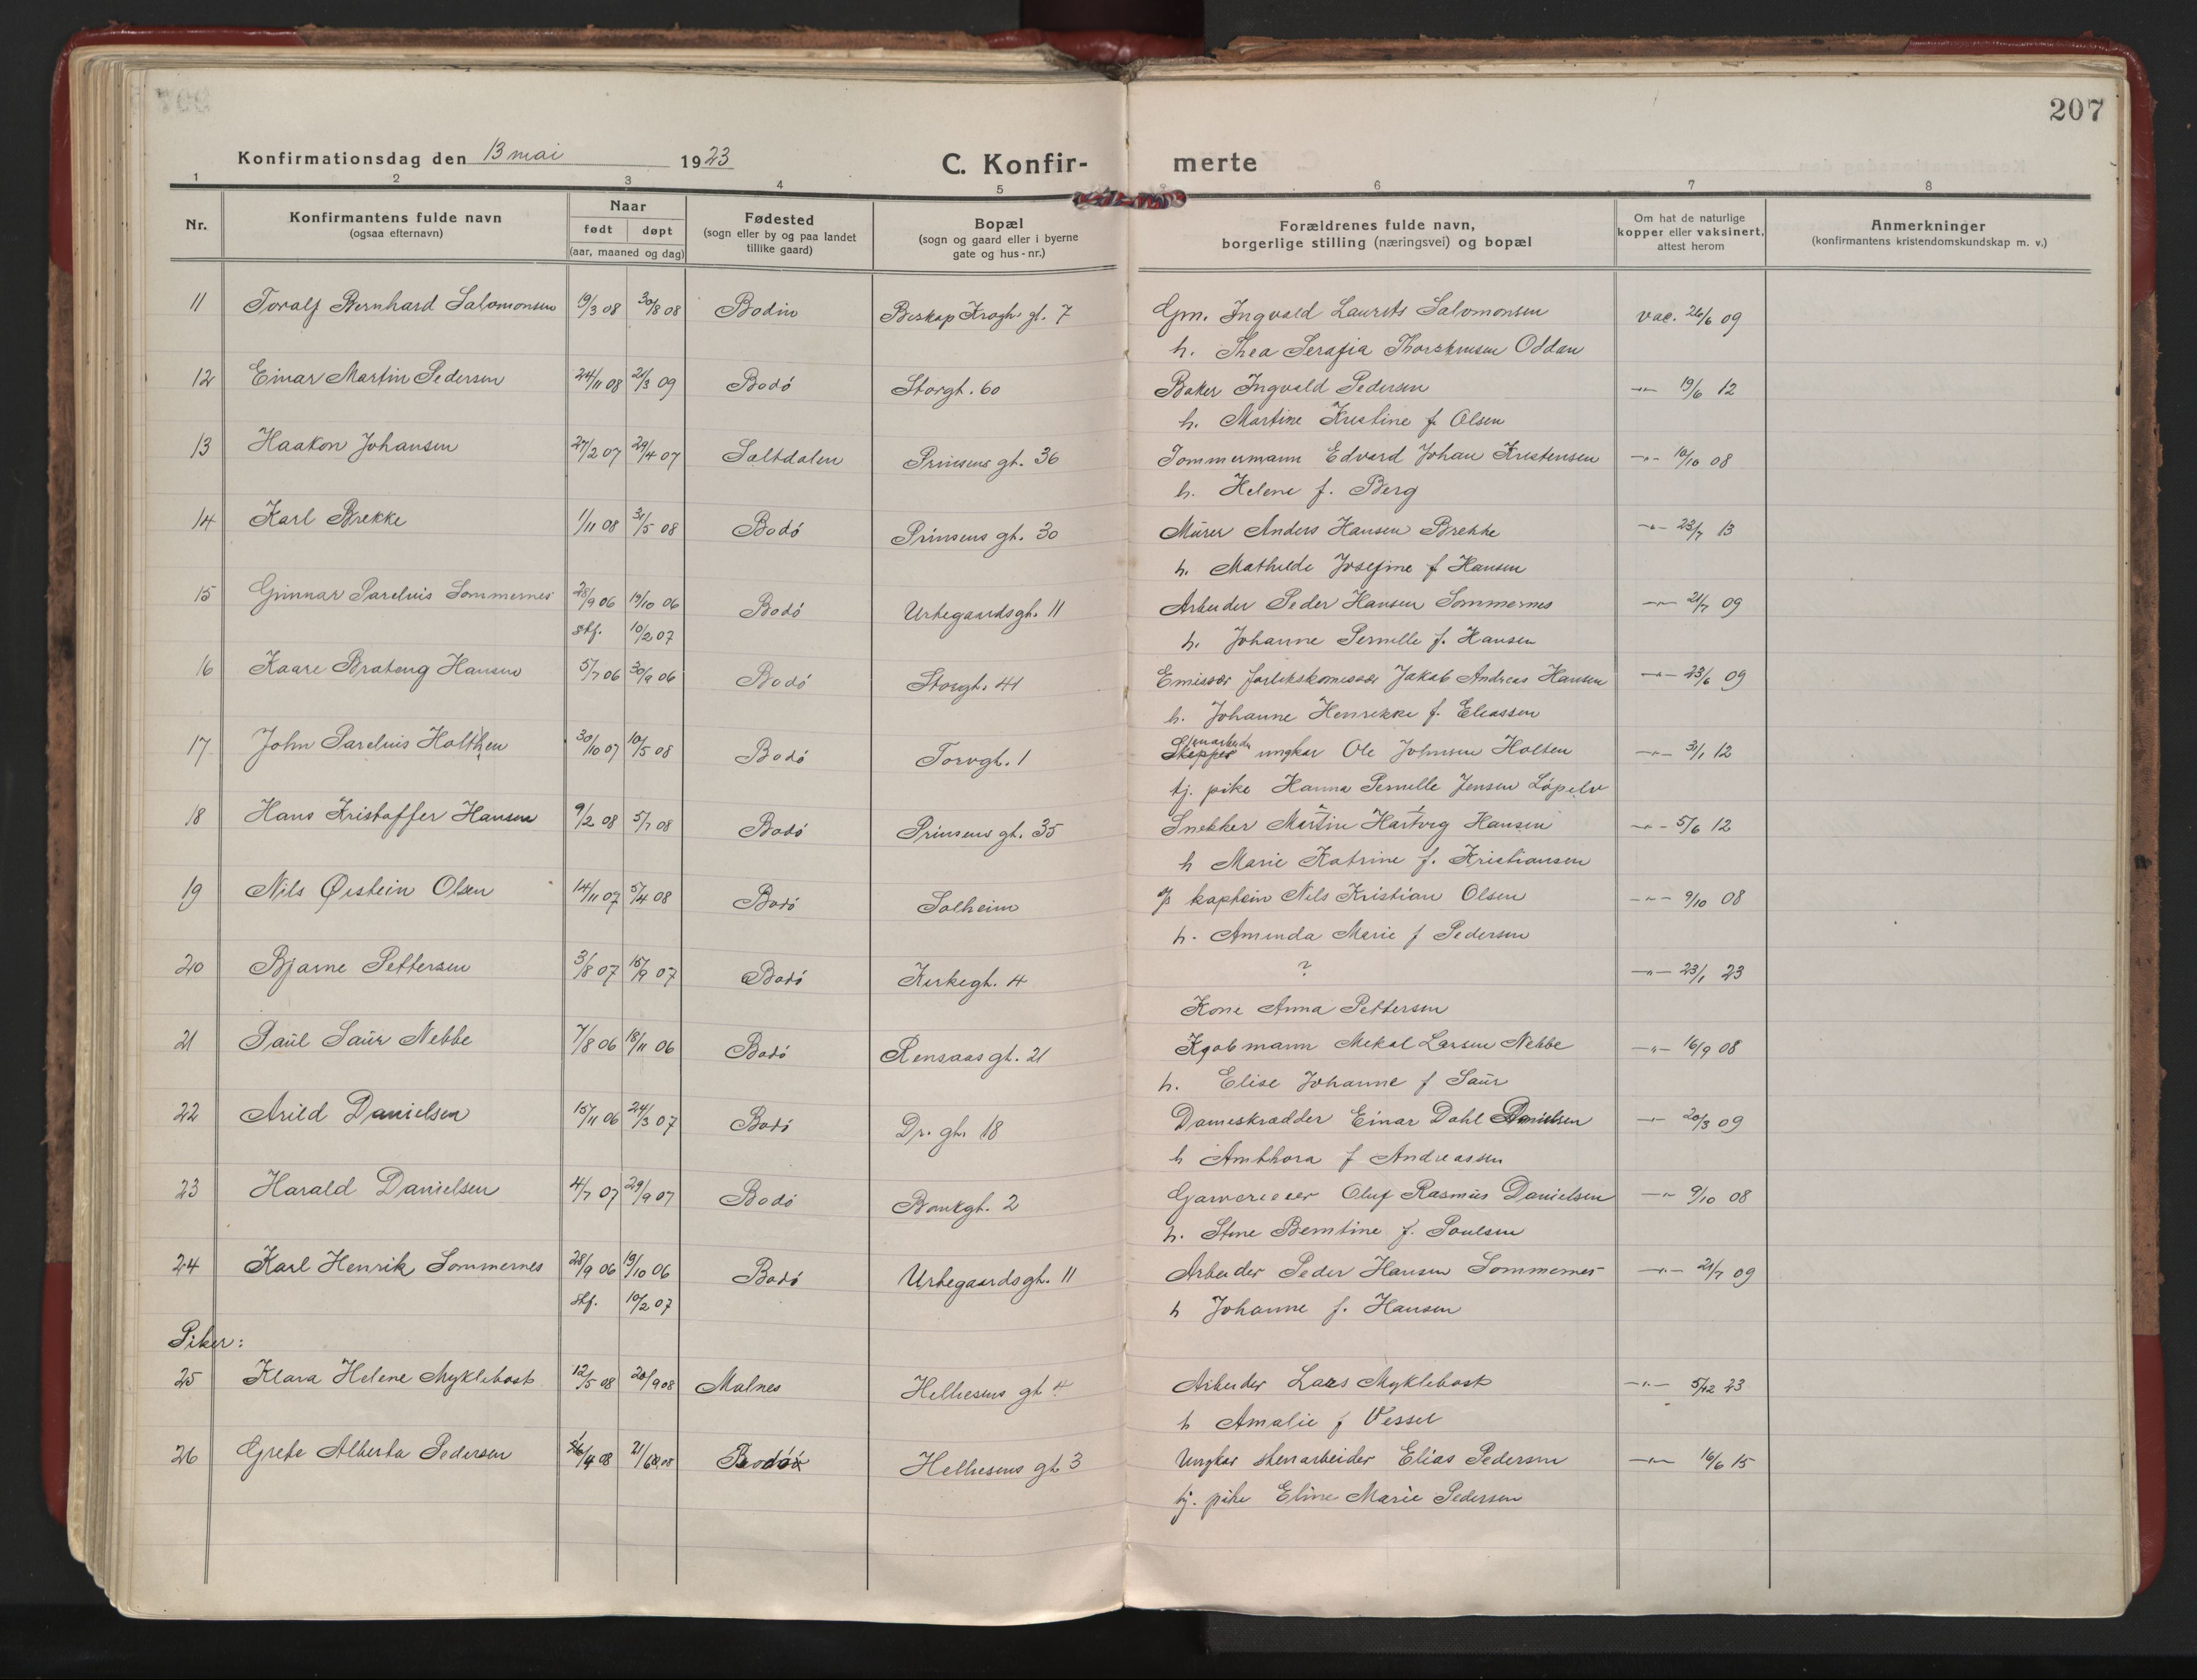 207
Konfirmationsdag den 13 mai 1923
C. Konfir-merte
1 2 3 4 5 6 7 8
Nr. Konfirmantens fulde navn (ogsaa efternavn) Naar født døpt (aar, maaned og dag) Fødested (sogn eller by og paa landet tillike gaard) Bopæl (sogn og gaard eller i byerne gate og hus-nr.) Forældrenes fulde navn, borgerlige stilling (næringsvei) og bopæl Om hat de naturlige kopper eller vaksinert, attest herom Anmerkninger (konfirmantens kristendomskundskap m. v.)
11 Toralf Bernhard Salomonsen 19/3 08 30/8 08 Bodin Biskop Kroghs gt. 7 Gm. Ingvald Laurits Salomonsen vac. 26/6 09
h. Thea Serafia Thorstensen Oddan
12 Einar Martin Pedersen 24/11 08 21/3 09 Bodó Storgt. 60 Baker Ingvald Pedersen —"— 19/6 12
h. Martine Kristine f. Olsen
13 Haakon Johansen 27/2 07 29/4 07 Saltdalen Prinsens gt. 36 Tommermann Edvard Johan Kristensen —"— 10/10 08
h. Helene f. Berg
14 Karl Brekke 1/11 08 31/5 08 Bodó Prinsens gt. 30 Murer Anders Hansen Brekke —"— 23/7 13
h. Mathilde Josefine f Hansen
15 Gunnar Parelius Sommernes 28/9 06 19/10 06 Bodó Urtegaardsgt. 11 Arbeider Peder Hansen Sommernes —"— 21/7 09
stf. 10/2 07 h. Johanne Pernille f. Hansen
16 Kaare Brateng Hansen 5/7 06 30/9 06 Bodó Storgt. 41 Emissær forlikskomissær Jakob Andreas Hansen —"— 23/6 09
h. Johanne Henrikke f. Eliassen
17 John Parelius Holthen 30/10 07 10/5 08 Bodó Torvgt. 1 Skipper stenarbeider ungkar Ole Johnsen Holten —"— 3/1 12
tj. pike Hanna Pernille Jensen Løpelv
18 Hans Kristoffer Hansen 9/2 08 5/7 08 Bodó Prinsens gt. 35 Snekker Martin Hartvig Hansen —"— 5/6 12
h Marie Katrine f. Kristiansen
19 Nils Øistein Olsen 14/11 07 5/4 08 Bodó Solheim kaptein Nils Kristian Olsen —"— 9/10 08
h. Aminda Marie f Pedersen
20 Bjarne Pettersen 3/8 07 15/9 07 Bodó Kirkegt. 4 ? —"— 23/1 23
Kone Anna Pettersen
21 Paul Saur Nebbe 7/8 06 18/11 06 Bodó Rensaas gt. 21 Kjøbmann Mekal Larsen Nebbe —"— 16/9 08
h. Elise Johanne f Saur
22 Arild Danielsen 15/11 06 24/3 07 Bodó Dr. gt. 18 Dameskrædder Einar Dahl Danielsen —"— 20/3 09
h Anthora f Andreassen
23 Harald Danielsen 4/7 07 29/9 07 Bodó Bankgt. 2 Oluf Rasmus Danielsen —"— 9/10 08
h. Stine Berntine f. Poulsen
24 Karl Henrik Sommernes 28/9 06 19/10 06 Bodó Urtegaardsgt. 11 Arbeider Peder Hansen Sommernes —"— 21/7 09
stf. 10/2 07 h Johanne f. Hansen
Piker:
25 Klara Helene Myklebost 12/5 08 20/9 08 Malnes Hellesens gt 4 Arbeider Lars Myklebost —"— 5/12 23
h Amalie f Vessel
26 Grete Alberta Pedersen /4 08 21/6 08 Bodó Hellesens gt 3 Ungkar stenarbeider Elias Pedersen —"— 16/6 15
tj. pike Eline Marie Pedersen